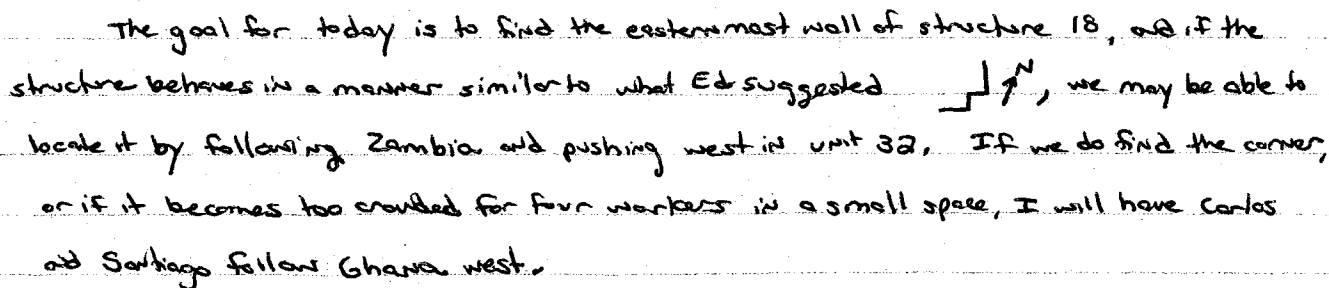 The goal for today is to find the easternmost wall of structure 18, and if the
structure behaves in a manner similar to what Ed suggested N, we may be able to
locate it by following Zambia and pushing west in unit 32. If we do find the corner,
or if it becomes too crowded for four workers in a small space, I will have Carlos
and Santiago follow Ghana west.